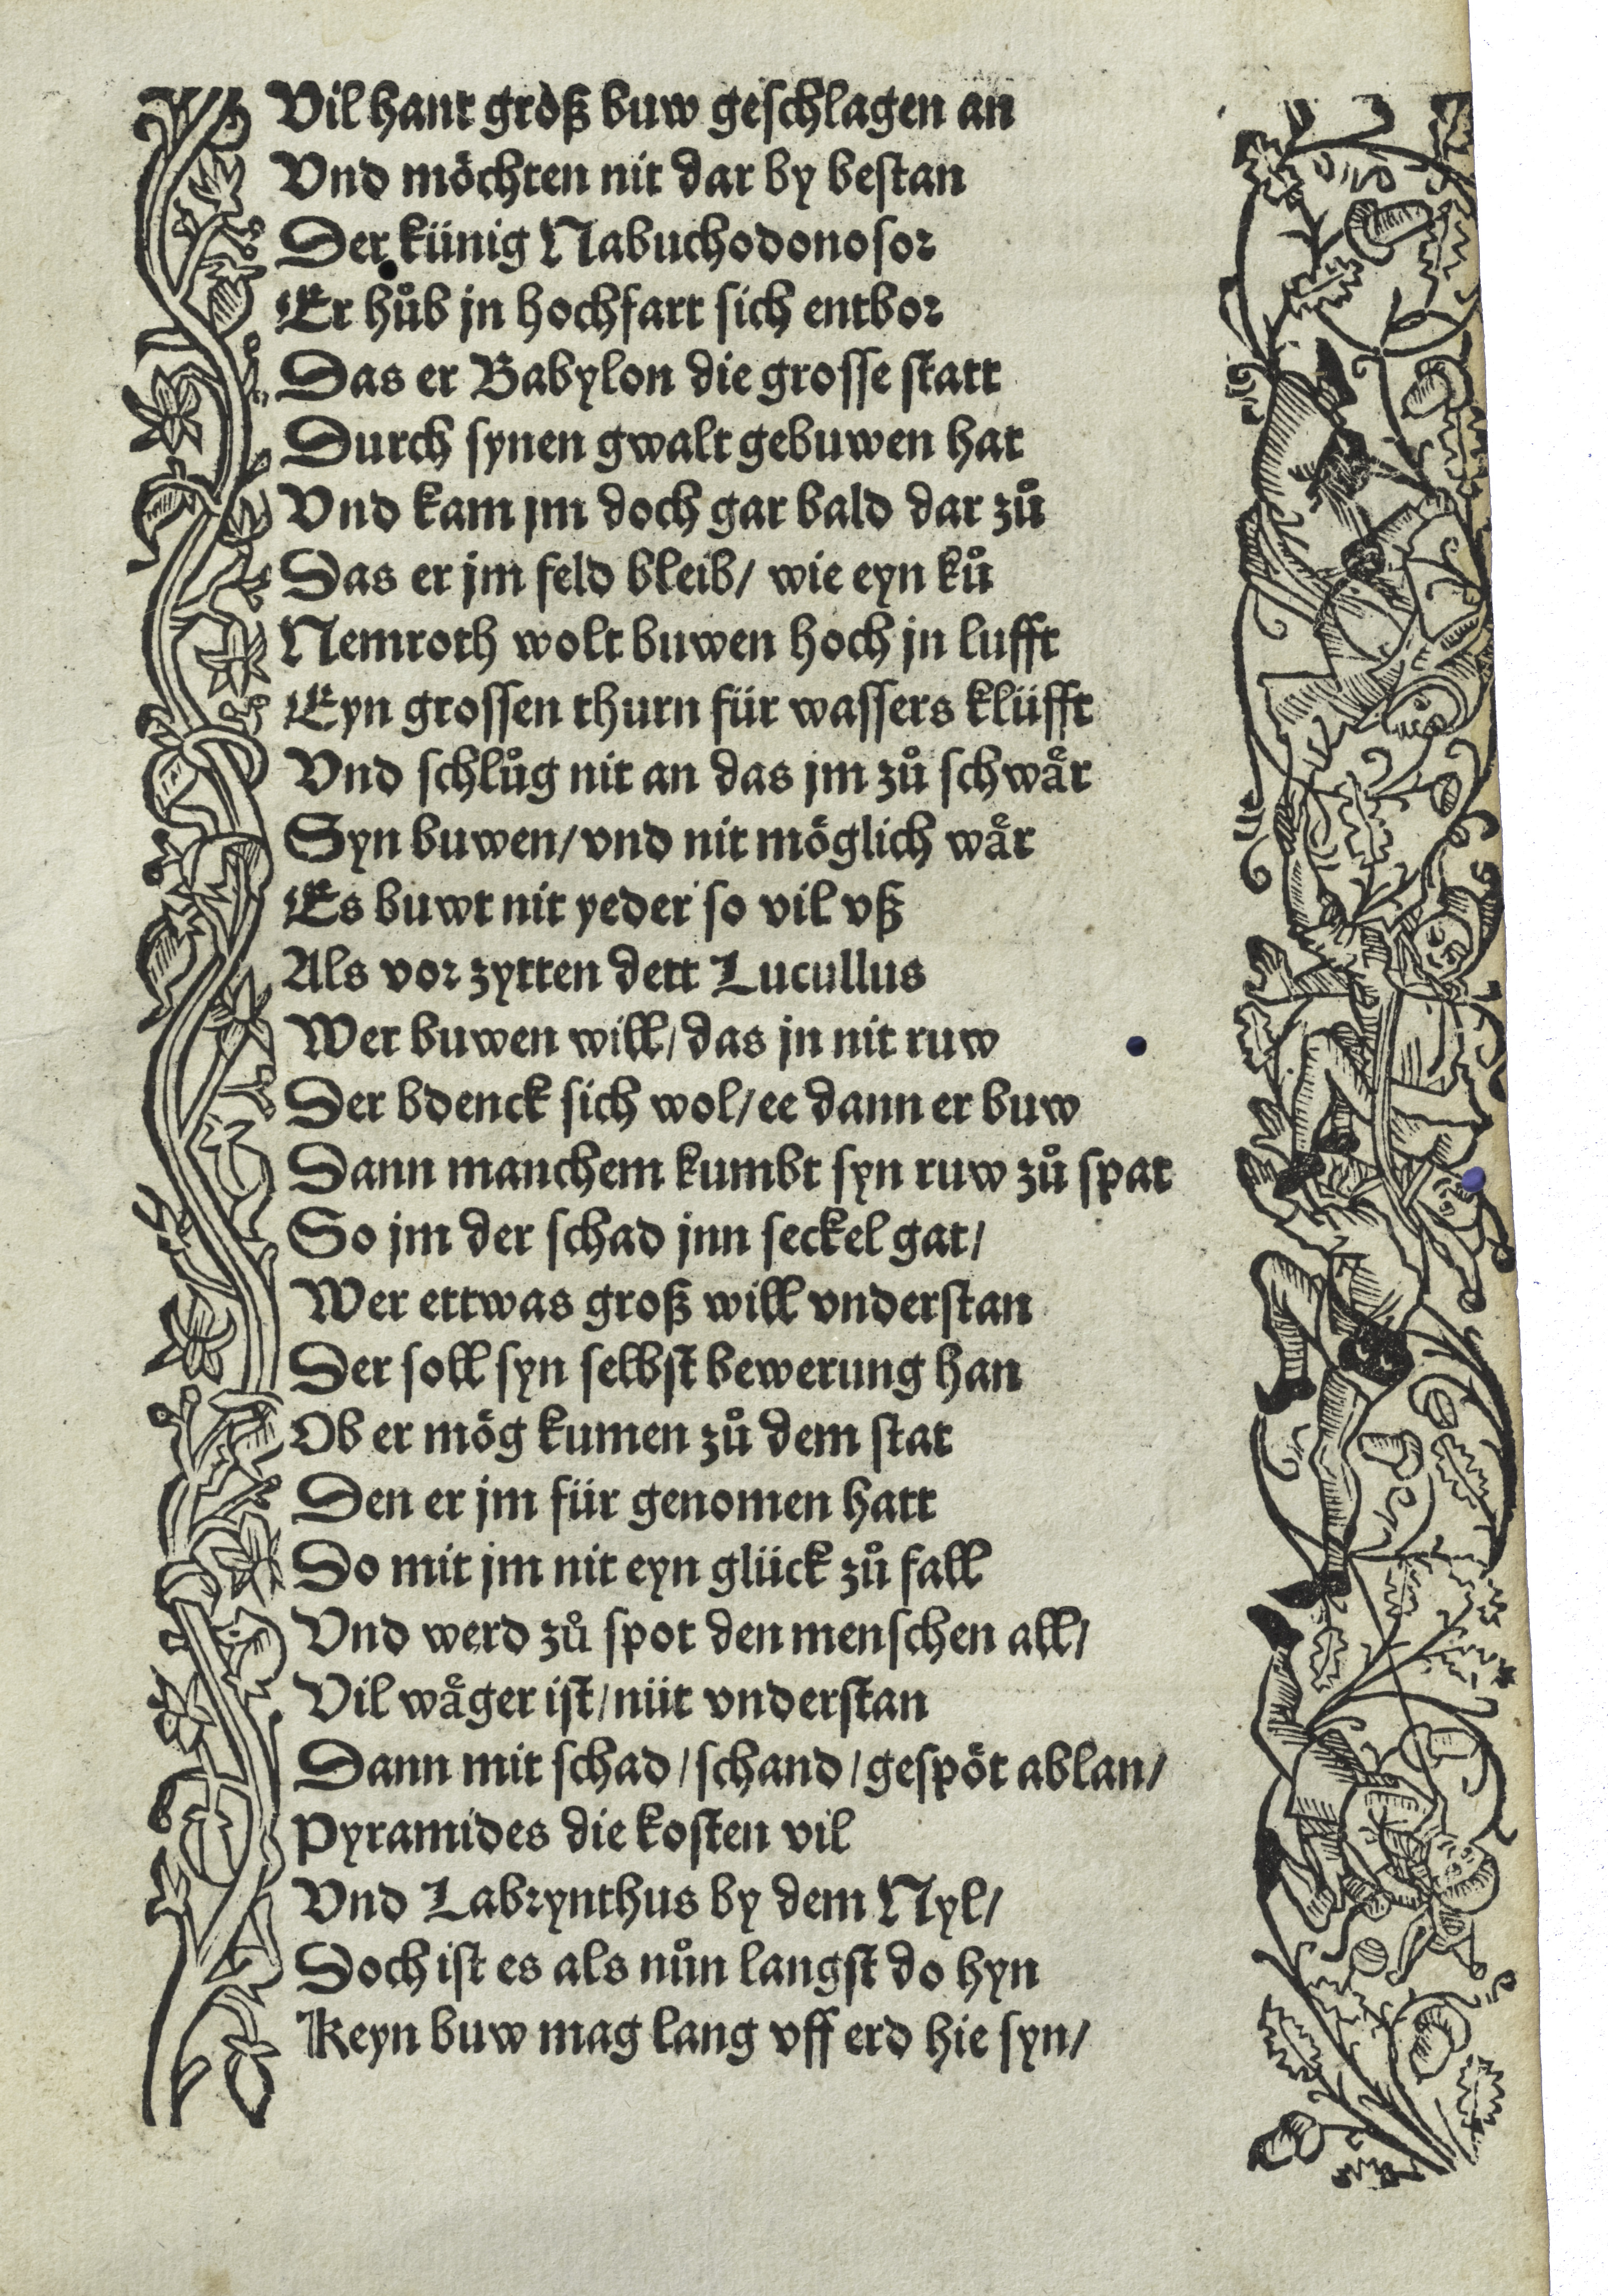 Vil hant groͤß buw geschlagen an
Vnd moͤchten nit dar by bestan
Der künig Nabuchodonosor
Er huͦb jn hochfart sich entbor
Das er Babylon die grosse statt
Durch synen gwalt gebuwen hat
Vnd kam jm doch gar bald dar zuͦ
Das er jm feld bleib/ wie eyn kuͦ
Nemroth wolt buwen hoch jn lufft
Eyn grossen thurn für wassers klüfft
Vnd schluͦg nit an das jm zuͦ schwaͤr
Syn buwen/ vnd nit moͤglich waͤr
Es buwt nit yeder so vil vß
Als vor zytten dett Lucullus
Wer buwen will/ das jn nit ruw
Der bdenck sich wol/ ee dann er buw
Dann manchem kumbt syn ruw zuͦ spat
So jm der schad jnn seckel gat/
Wer ettwas groß will vnderstan
Der soll syn selbst bewerung han
Ob er moͤg kumen zuͦ dem stat
Den er jm für genomen hatt
Do mit jm nit eyn glück zuͦ fall
Vnd werd zuͦ spot den menschen all/
Vil waͤger ist/ nüt vnderstan
Dann mit schad/ schand/ gespoͤt ablan/
Pyramides die kosten vil
Vnd Labrynthus by dem Nyl/
Doch ist es als nuͦn langst do hyn
Keyn buw mag lang vff erd hie syn/